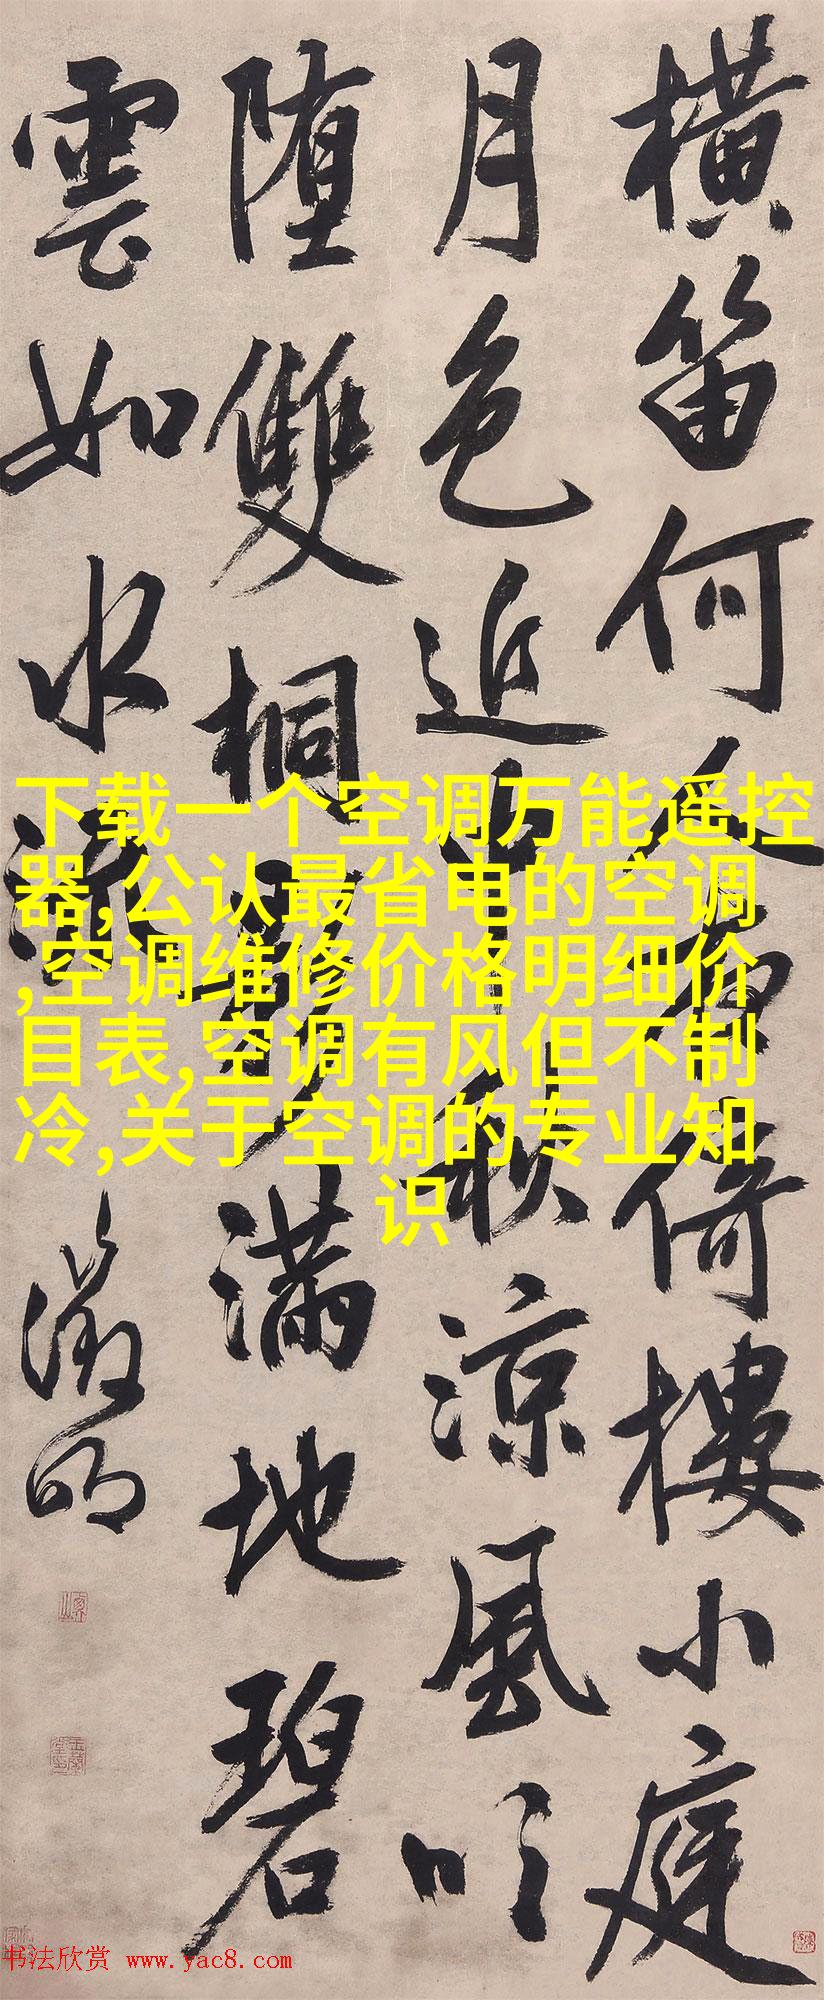 橫笛何人夜倚樓小庭
月色近中秋涼風吹
堕雙桐影滿地碧
雲如水流
徵明
下载一个空调万能遥控
器,公认最省电的空调
,空调维修价格明细价
目表,空调有风但不制
冷,关于空调的专业知
识
书法欣赏 www.yac8.com